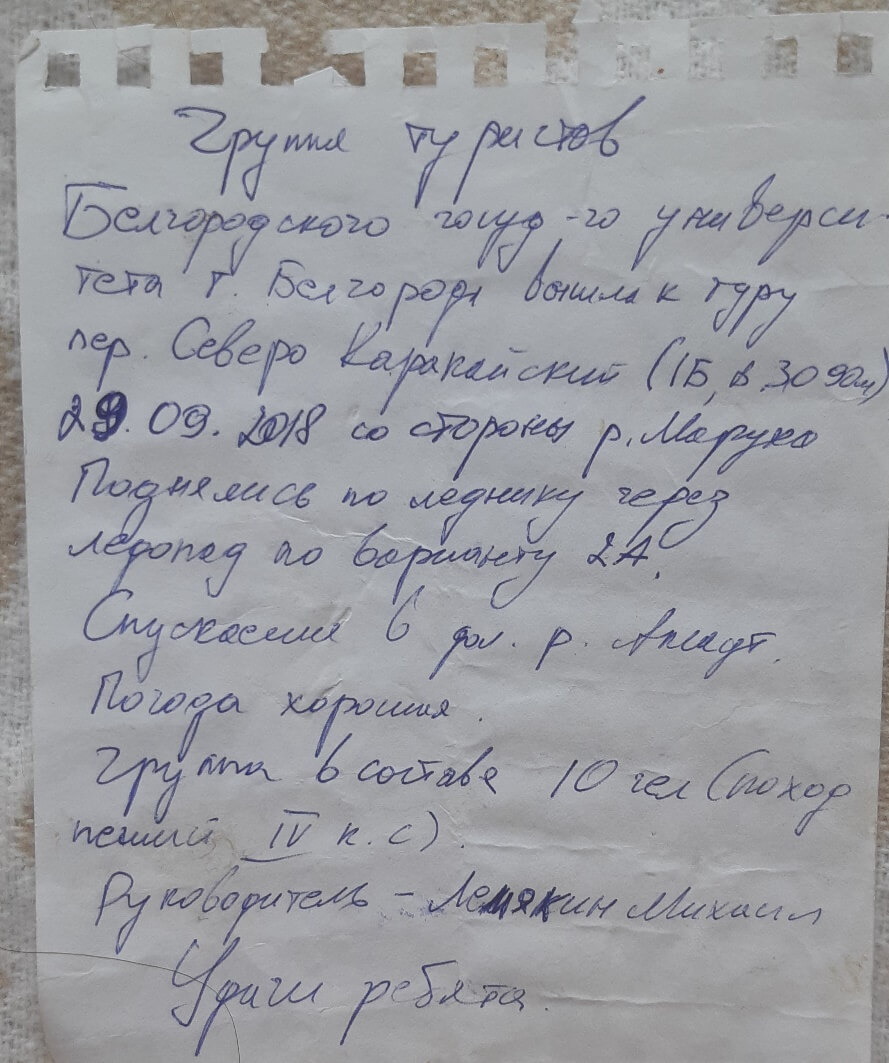 Группа туристов
Белгородского госуд-го универси-
тета г. Белгорода вышла к туру
пер. Северо Каракайский (1Б, 3090м)
29.09.2018 со стороны р. Маруха
Поднялись по леднику через
ледопад по варианту 2А.
Спускаемся в дол. р. Аксаут.
Погода хорошая.
Группа в составе 10 чел (поход
пеший IV к.с).
Руководитель - Михаил
Удачи ребята.